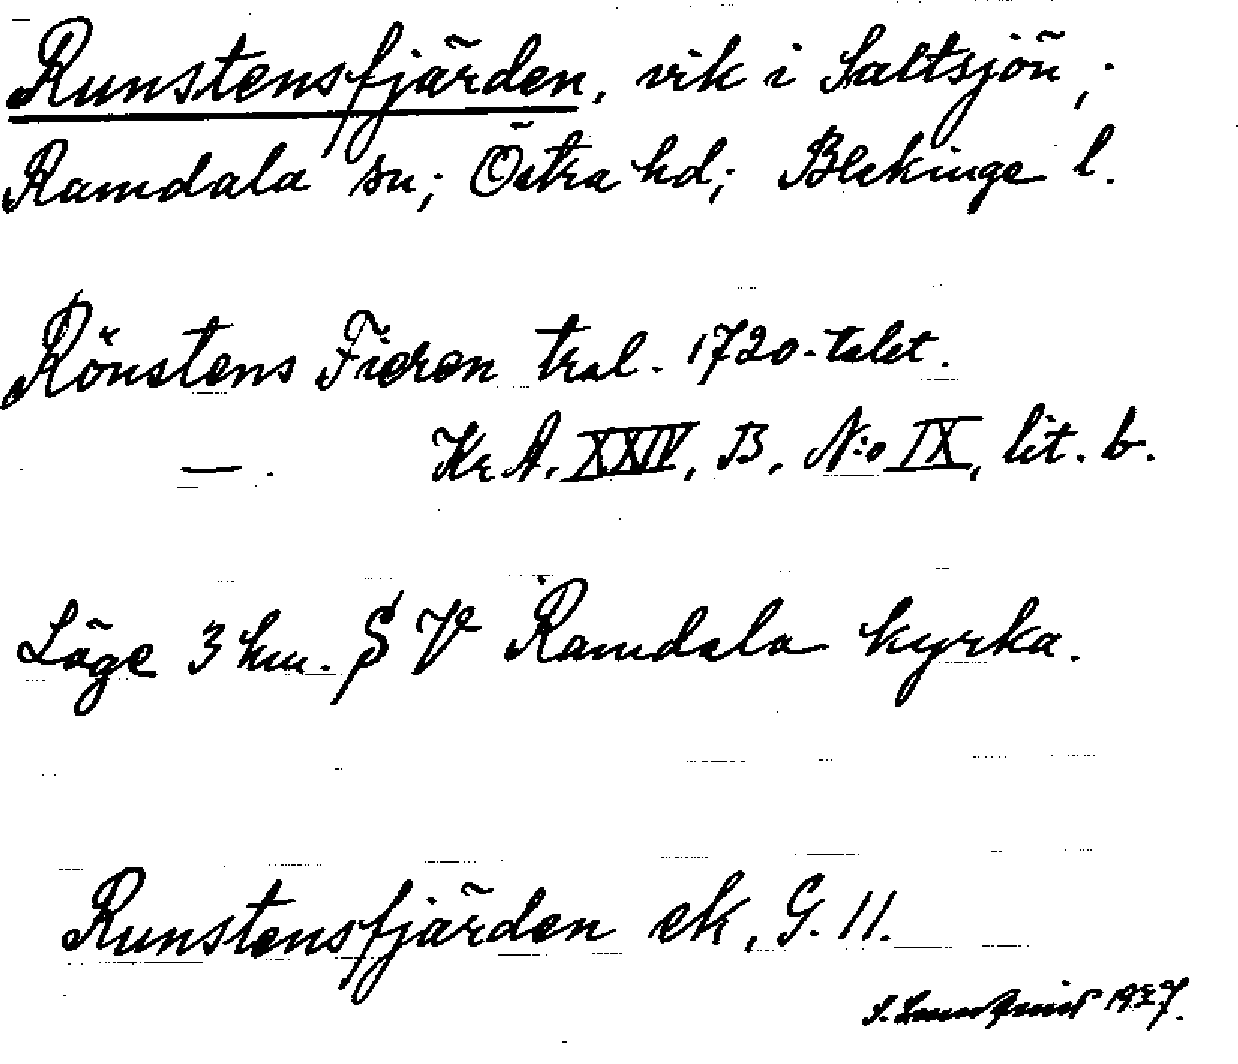 Runstensfjärden, vik i Saltsjön;
Ramdala sn; Östra hd; Blekinge l.
Rönstens Fieren tral. 1720-talet.
—. Kr A. XXIV, B, N:o IX, lit. b.
Läge 3 km. S V Ramdala kyrka.
Runstensfjärden ek, G. 11.
S. 1927.